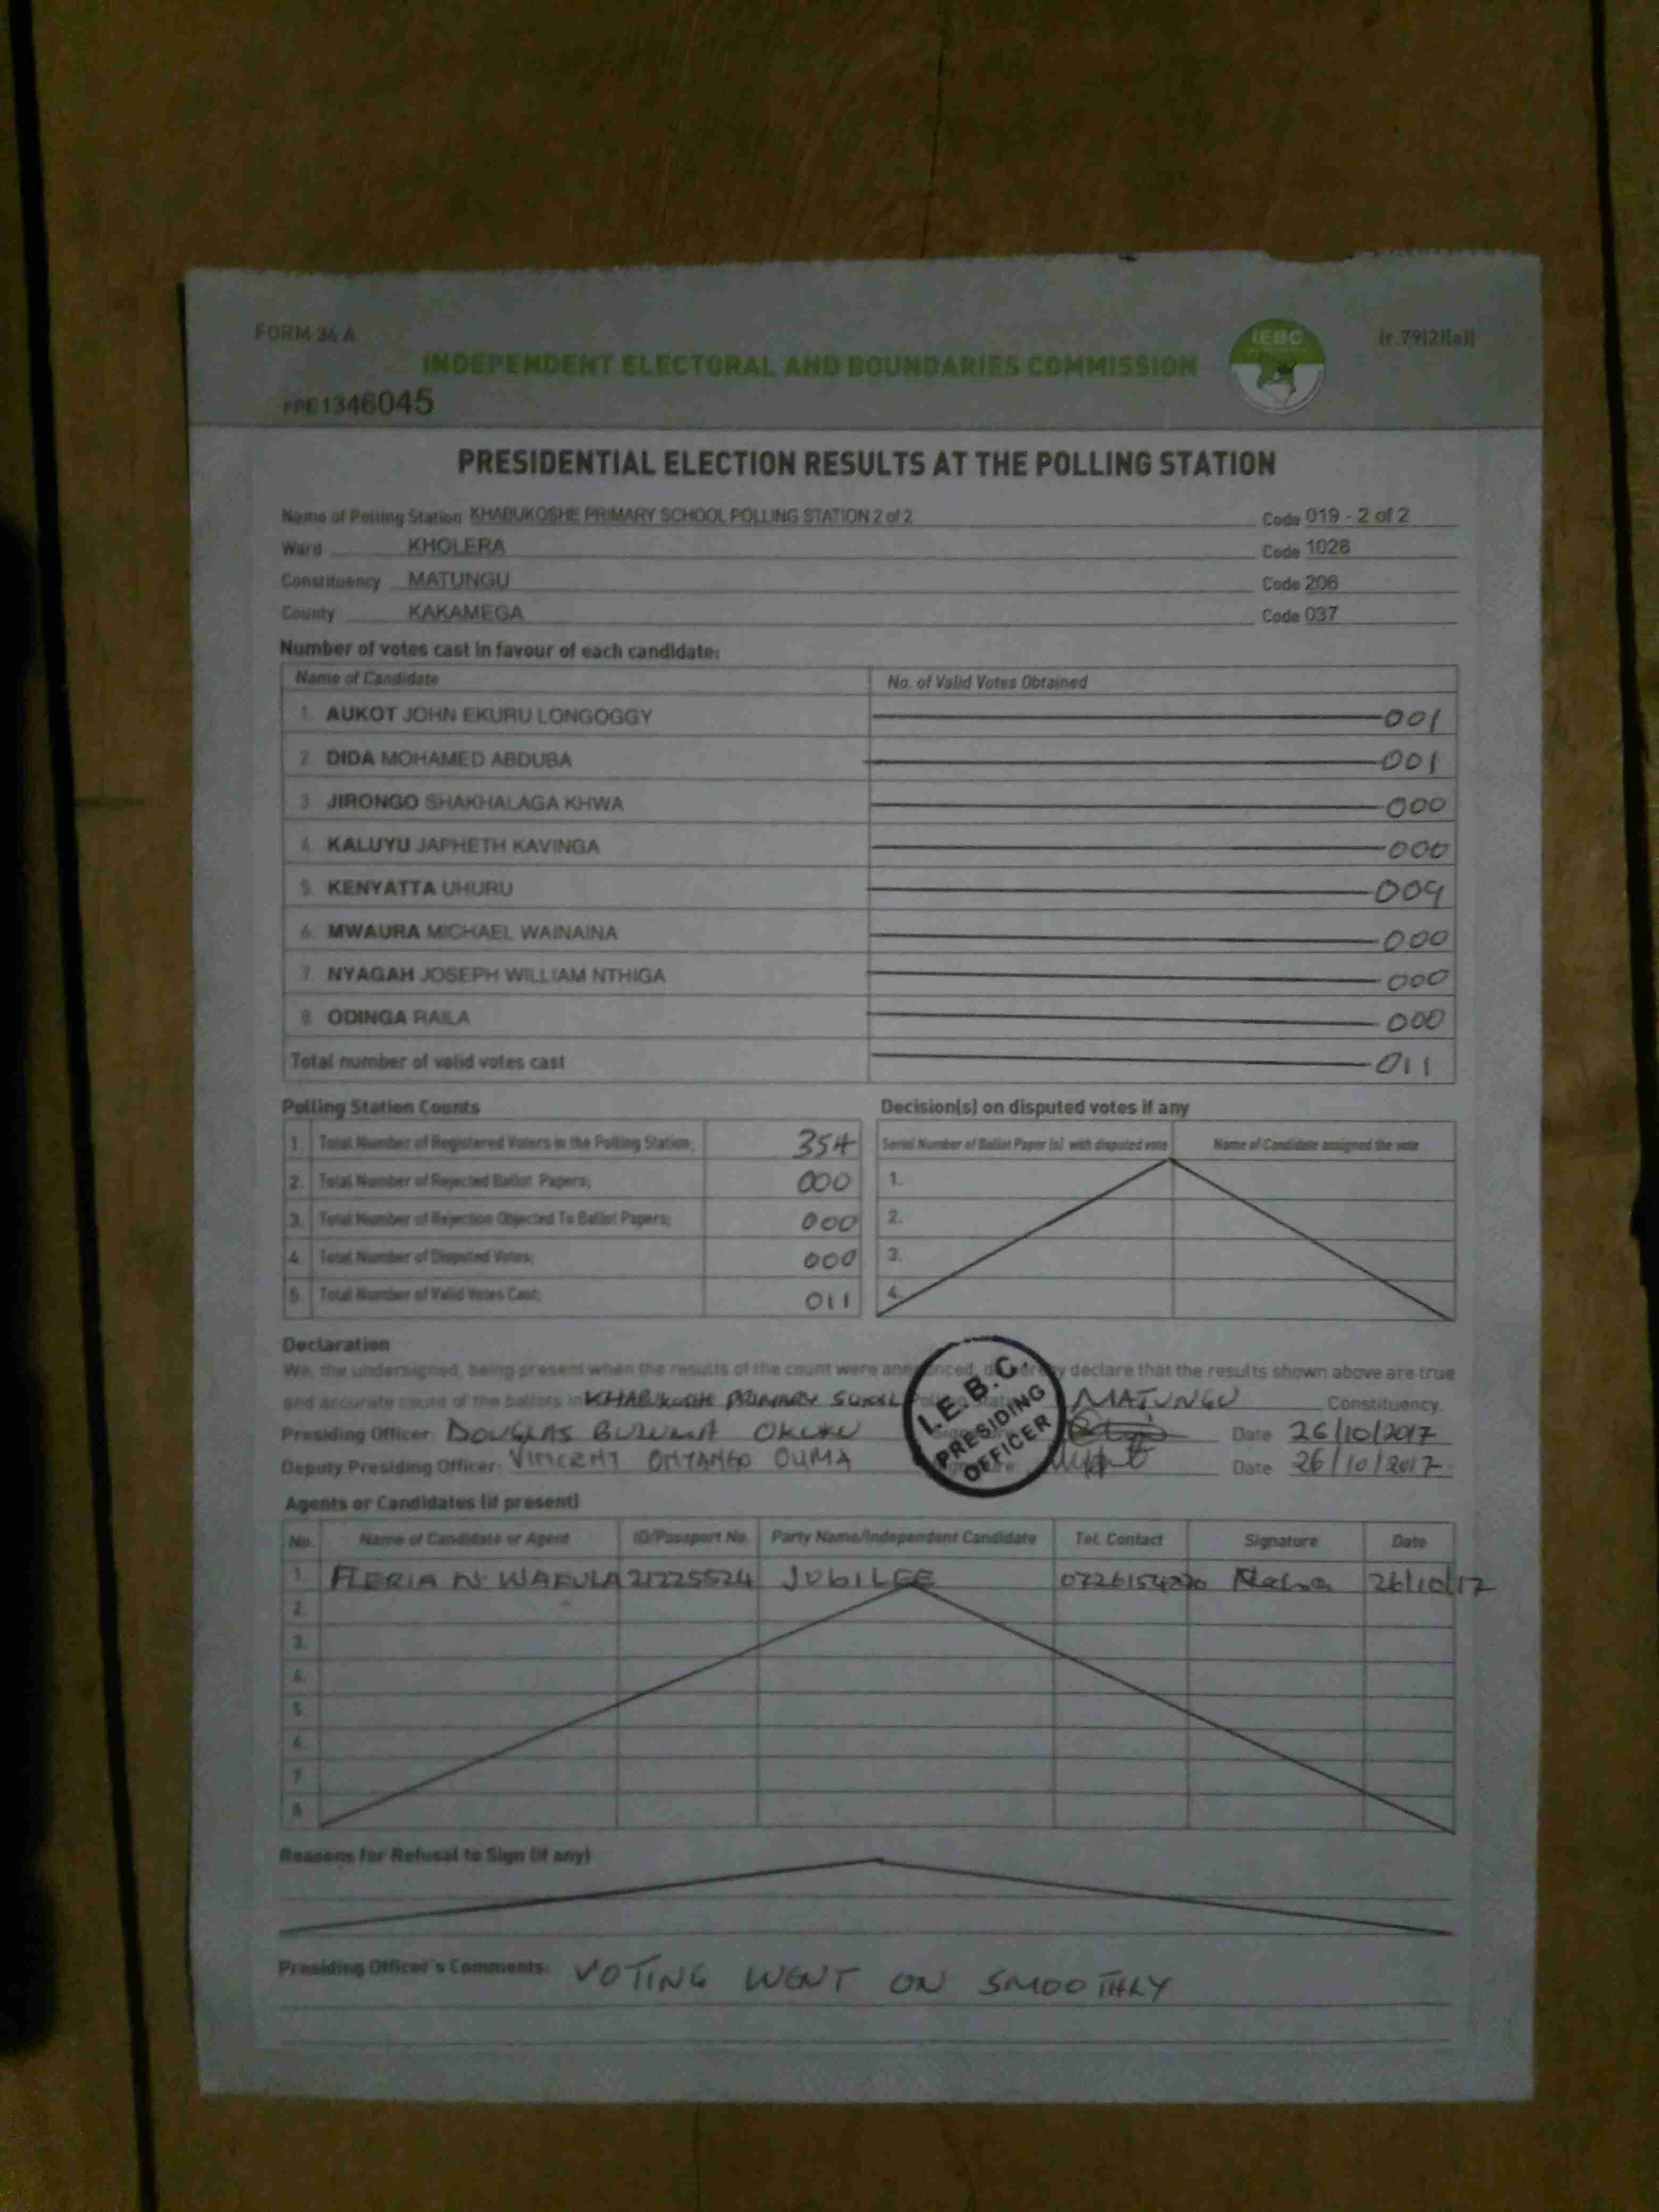 FORM 34 A
IEBC
(r.79(2)(a))
INDEPENDENT ELECTORAL AND BOUNDARIES COMMISSION
PPE1346045
PRESIDENTIAL ELECTION RESULTS AT THE POLLING STATION
Name of Polling Station KHABUKOSHE PRIMARY SCHOOL POLLING STATION 2 of 2 Code 019 - 2 of 2
Ward KHOLERA Code 1028
Constituency MATUNGU Code 206
County KAKAMEGA Code 037
Number of votes cast in favour of each candidate:
Name of Candidate No. of Valid Votes Obtained
1. AUKOT JOHN EKURU LONGOGGY 001
2. DIDA MOHAMED ABDUBA 001
3. JIRONGO SHAKHALAGA KHWA 000
4. KALUYU JAPHETH KAVINGA 000
5. KENYATTA UHURU 009
6. MWAURA MICHAEL WAINAINA 000
7. NYAGAH JOSEPH WILLIAM NTHIGA 000
8. ODINGA RAILA 000
Total number of valid votes cast 011
Polling Station Counts Decision(s) on disputed votes if any
Serial Number of Ballot Paper (s) with disputed vote Name of Candidate assigned the vote
1. Total Number of Registered Voters in the Polling Station; 354
2. Total Number of Rejected Ballot Papers; 000 1.
3. Total Number of Rejection Objected To Ballot Papers; 000 2.
4. Total Number of Disputed Votes; 000 3.
5. Total Number of Valid Votes Cast; 011 4.
Declaration
We, the undersigned, being present when the results of the count were announced, do hereby declare that the results shown above are true
and accurate count of the ballots in KHABUKOSHE PRIMARY SCHOOL MATUNGU Constituency.
Presiding Officer: DOUGLAS OKUKU Date 26/10/2017
Deputy Presiding Officer: VINCENT ONYANGO OUMA Date 26/10/2017
I.E.B.C
PRESIDING
OFFICER
Agents or Candidates (if present)
No. Name of Candidate or Agent ID/Passport No. Party Name/Independent Candidate Tel. Contact Signature Date
1. FLERIA N. WAFULA 21225524 JUBILEE 26/10/17
2.
3.
4.
5.
6.
7.
8.
Reasons for Refusal to Sign (if any)
Presiding Officer's Comments: VOTING WENT ON SMOOTHLY